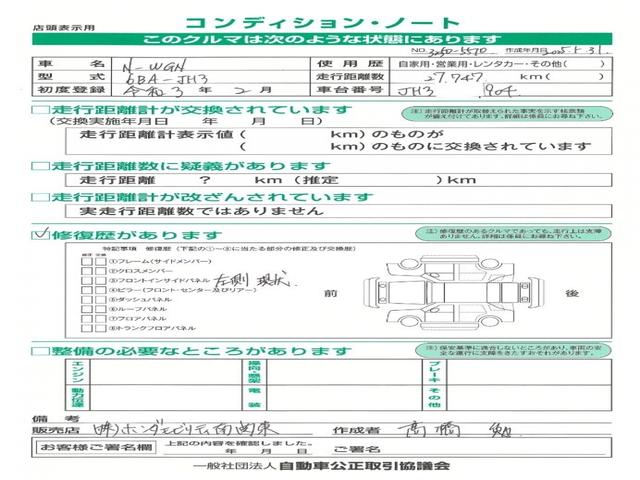 店頭表示用
コンディション・ノート
このクルマは次のような状態にあります
NO. 3250-5570 作成年月日 2025.5.31
車名 N-WGN 使用歴 自家用・営業用・レンタカー・その他( )
型式 6BA-JH3 走行距離数 27,747 km( )
初度登録 令和3年2月 車台番号 JH3 904
□走行距離計が交換されています
(交換実施年月日 年 月 日)
注)走行距離計が取替えられた事実を示す帳票類が備え付けてあります。詳細は係員にお尋ね下さい。
走行距離計表示値( km)のものが
( km)のものに交換されています
□走行距離数に疑義があります
走行距離 ? km(推定 )km
□走行距離計が改ざんされています
実走行距離数ではありません
☑修復歴があります
注)修復歴のあるクルマであっても、走行上は支障ありません。詳細は係員にお尋ね下さい。
特記事項 修復歴(下記の①~⑧に当たる部分の修正及び交換歴)
修正 交換
□□①フレーム(サイドメンバー)
□□②クロスメンバー
□□③フロントインサイドパネル 左側 現状
□□④ピラー(フロント・センター及びリアー)
□□⑤ダッシュパネル
□□⑥ルーフパネル
□□⑦フロアパネル
□□⑧トランクフロアパネル
前 後
□整備の必要なところがあります
注)保安基準に適合しないところがあり、車両の安全な運行に支障をきたすおそれがあります。
エンジン 操向&懸架 ブレーキ
動力伝達 電装 その他
備考
販売店 (株)ホンダモビリティ南関東 作成者 高橋
お客様ご署名欄 上記の内容を確認しました。
年 月 日 ご署名
一般社団法人 自動車公正取引協議会